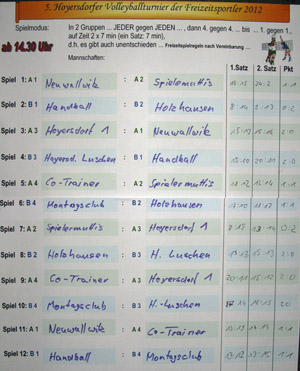 5. Hoyersdorfer Volleyballturnier der Freizeitsportler 2012
Spielmodus: In 2 Gruppen ... JEDER gegen JEDEN ... , dann 4. gegen 4. ... bis ... 1. gegen 1.,
ab 14.30 Uhr auf Zeit 2 x 7 min (ein Satz: 7 min),
d.h. es gibt auch unentschieden ... Freizeitspielregeln nach Vereinbarung ...
Mannschaften: Mannschaften: 1.Satz 2.Satz Pkt
Spiel 1: A 1 Neuwallwitz : A 2 Spielemuttis 1:1
Spiel 2: B 1 Handball : B 2 Holzhausen 0:2
Spiel 3: A 3 Hoyersdorf 1 : A 1 Neuwallwitz 2:0
Spiel 4: B 3 Hoyersd. Luschen : B 1 Handball 2:0
Spiel 5: A 4 Co-Trainer : A 2 Spielermuttis 1:1
Spiel 6: B 4 Montagsclub : B 2 Holzhausen 1:1
Spiel 7: A 2 Spielermuttis : A 3 Hoyersdorf 1 0:2
Spiel 8: B 2 Holzhausen : B 3 H. Luschen 2:0
Spiel 9: A 4 Co-Trainer : A 3 Hoyersdorf 1 20:11 2:0
Spiel 10: B 4 Montagsclub : B 3 H.-Luschen 2:0
Spiel 11: A 1 Neuwallwitz : A 4 Co-Trainer 1:1
Spiel 12: B 1 Handball : B 4 Montagsclub 13:12 1:1